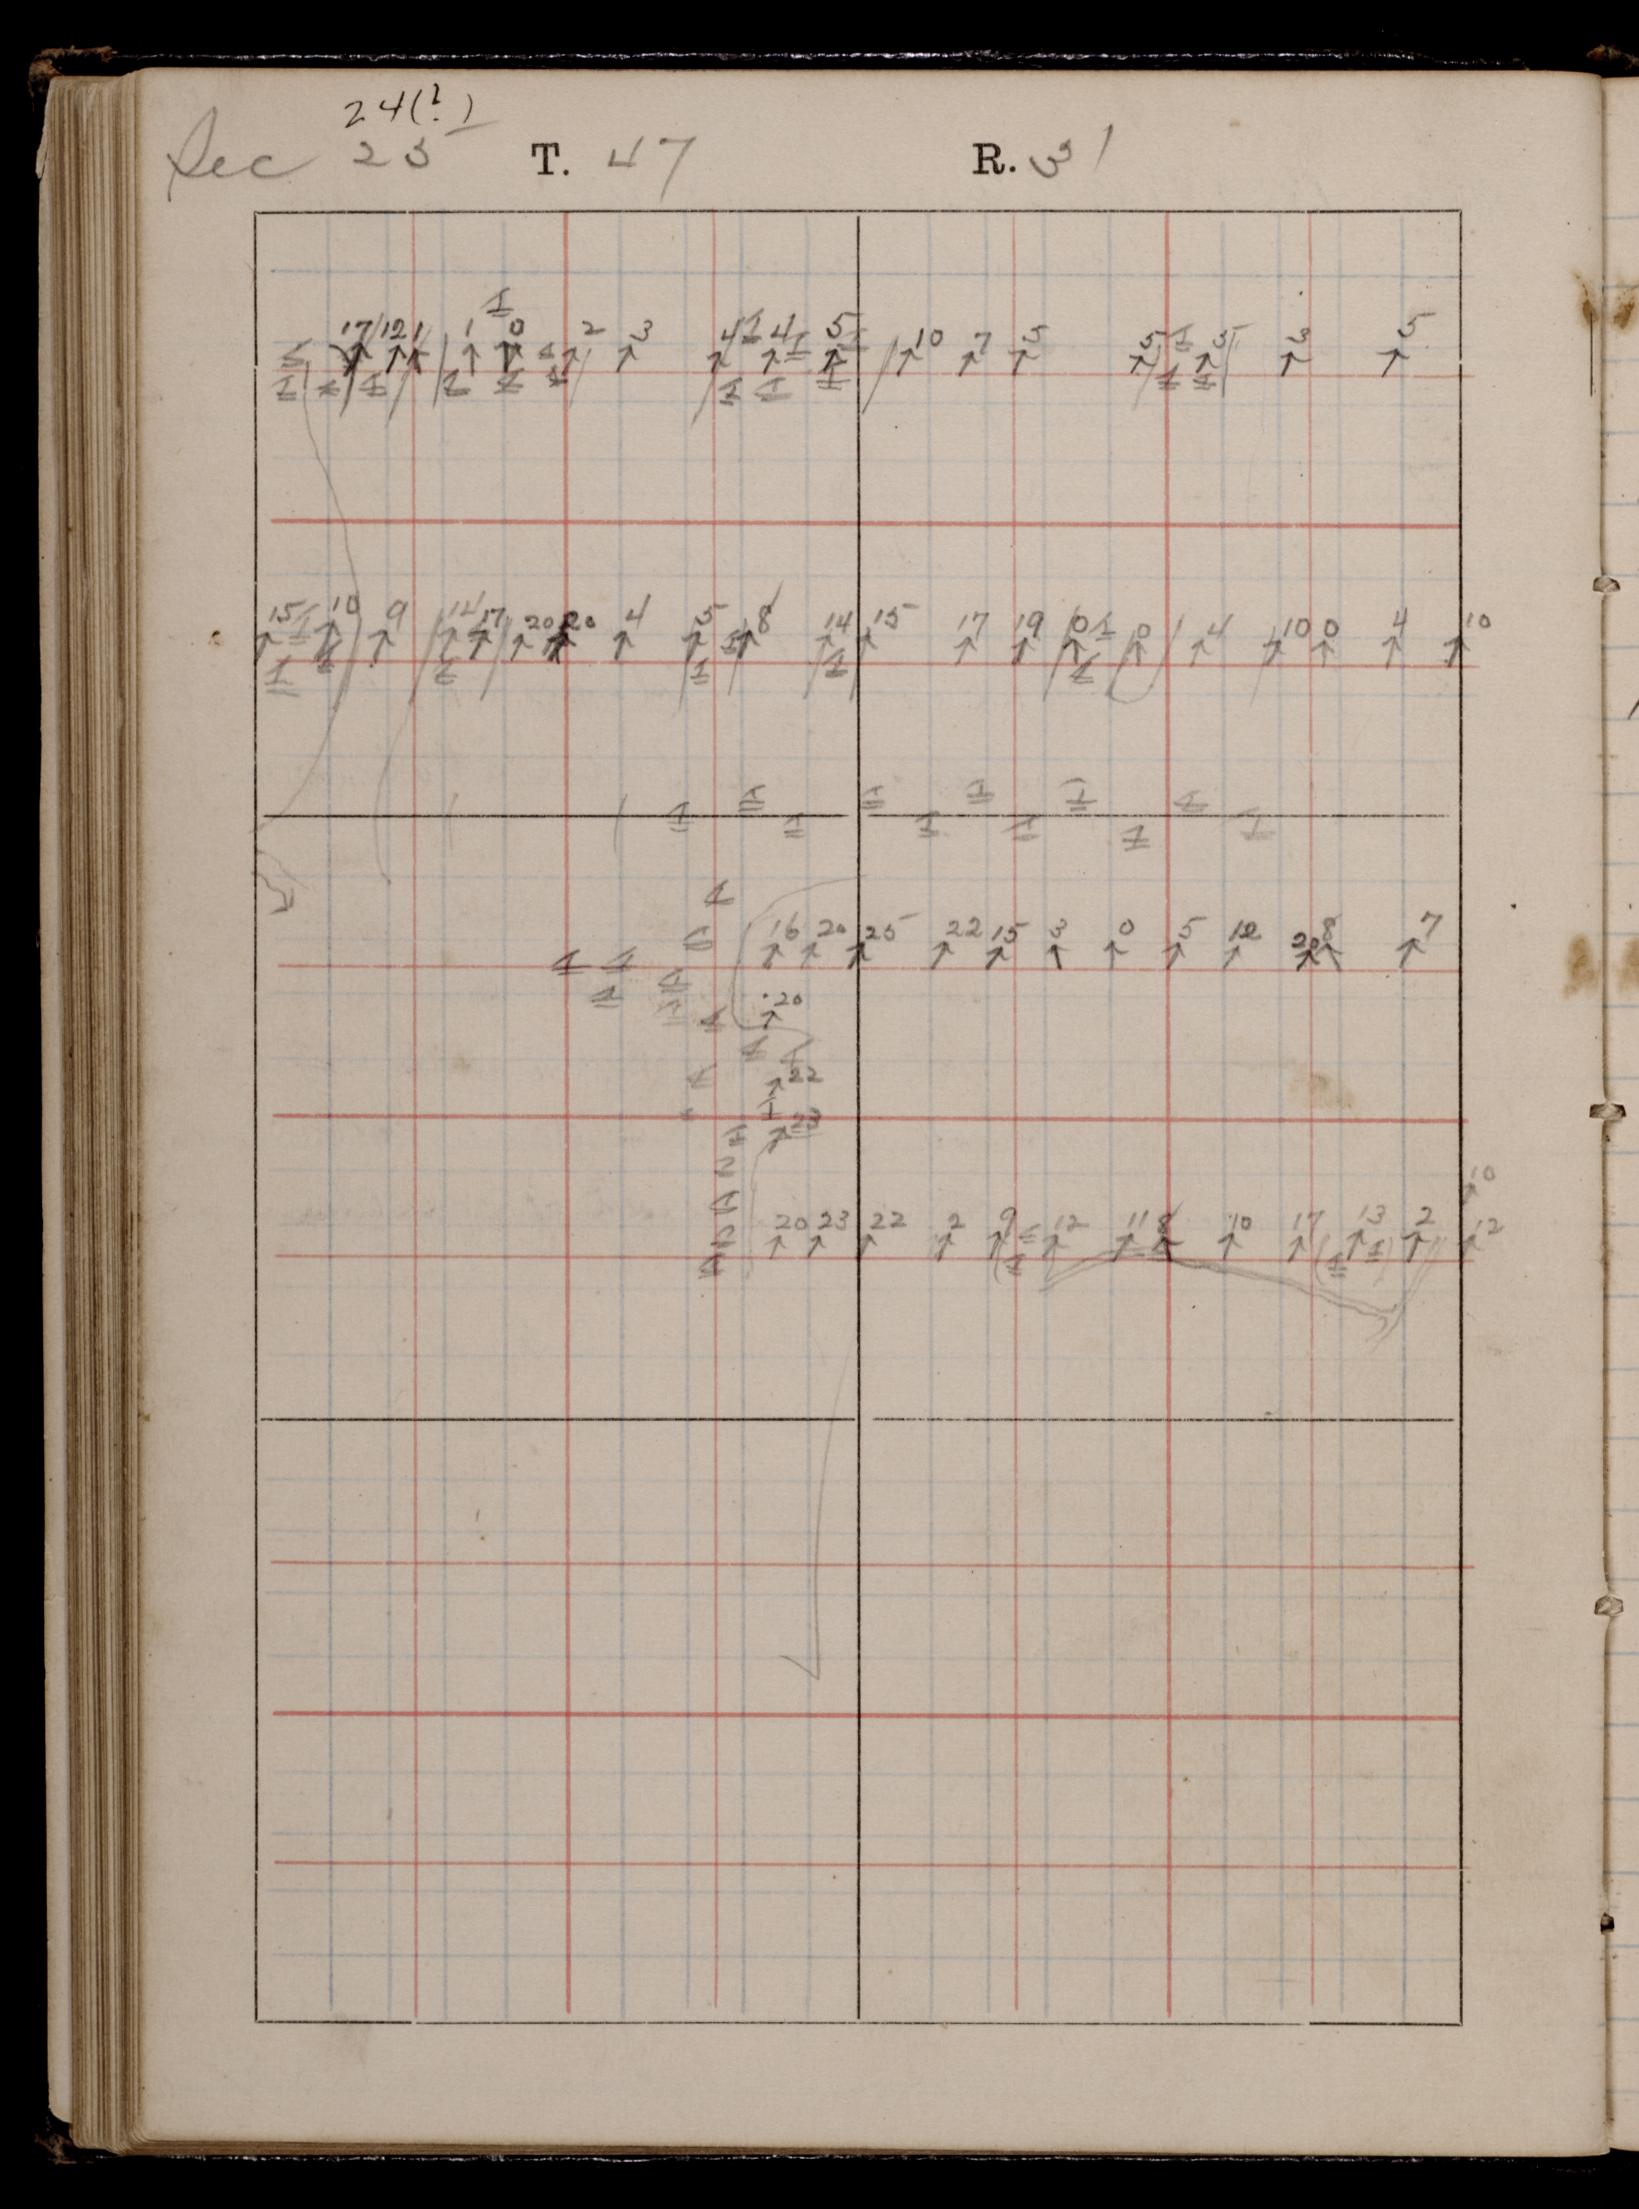 24(?)
Sec 25 T. 47 R. 31
17 12 1 1 0 2 3 4 4 5 10 7 5 5 5 3 5
15 10 9 14 17 20 20 4 5 8 14 15 17 19 0 0 4 10 0 4 10
16 20 25 22 15 3 0 5 12 20 8 7
20
22
23
10
20 23 22 2 9 12 11 8 10 17 13 2 12